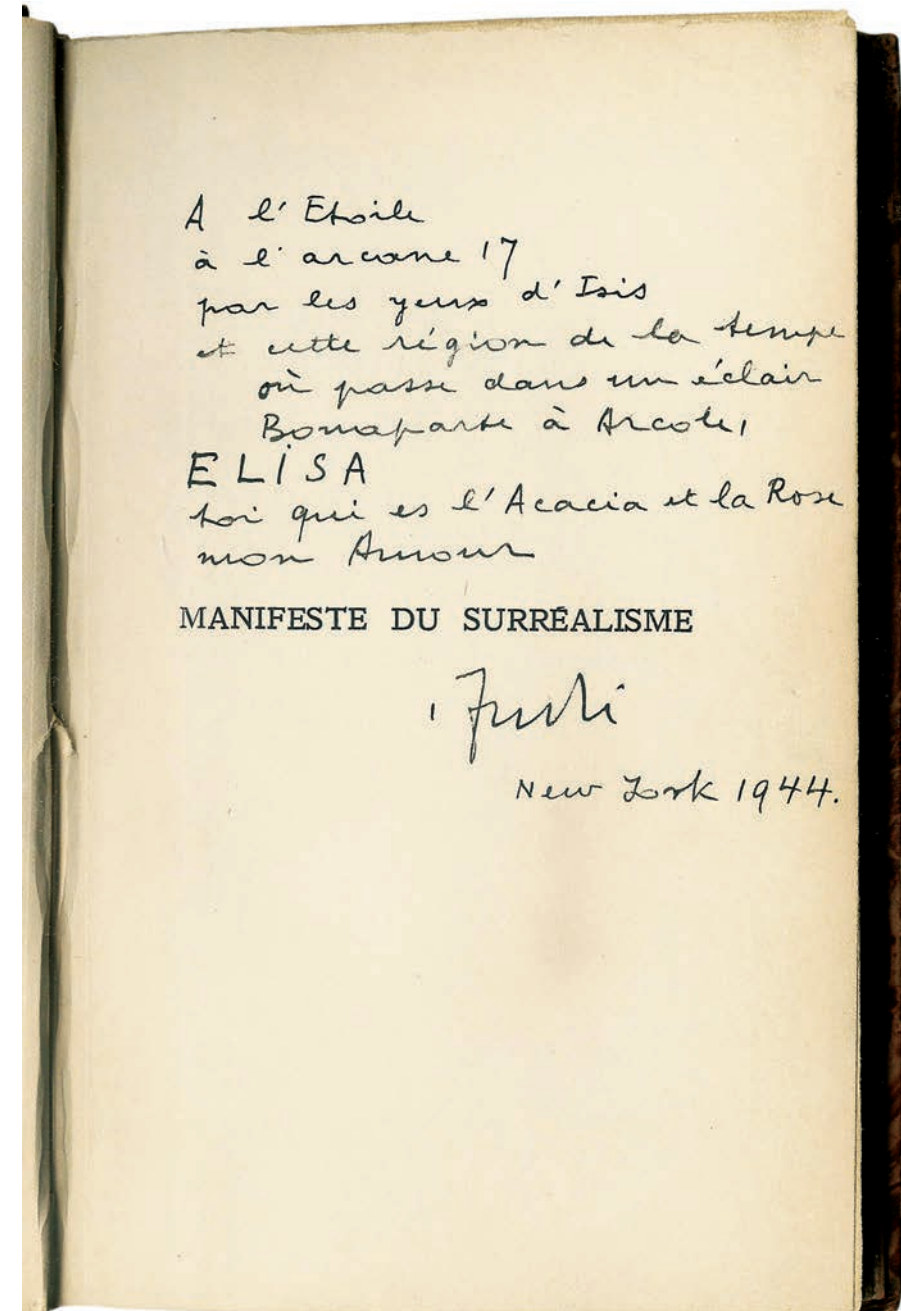 A l'Etoile
à l'arcane 17
par les yeux d'Isis
et cette région de la tempe
où passe dans un éclair
Bonaparte à Arcole,
ELISA
toi qui es l'Acacia et la Rose
mon Amour
MANIFESTE DU SURRÉALISME
New York 1944.